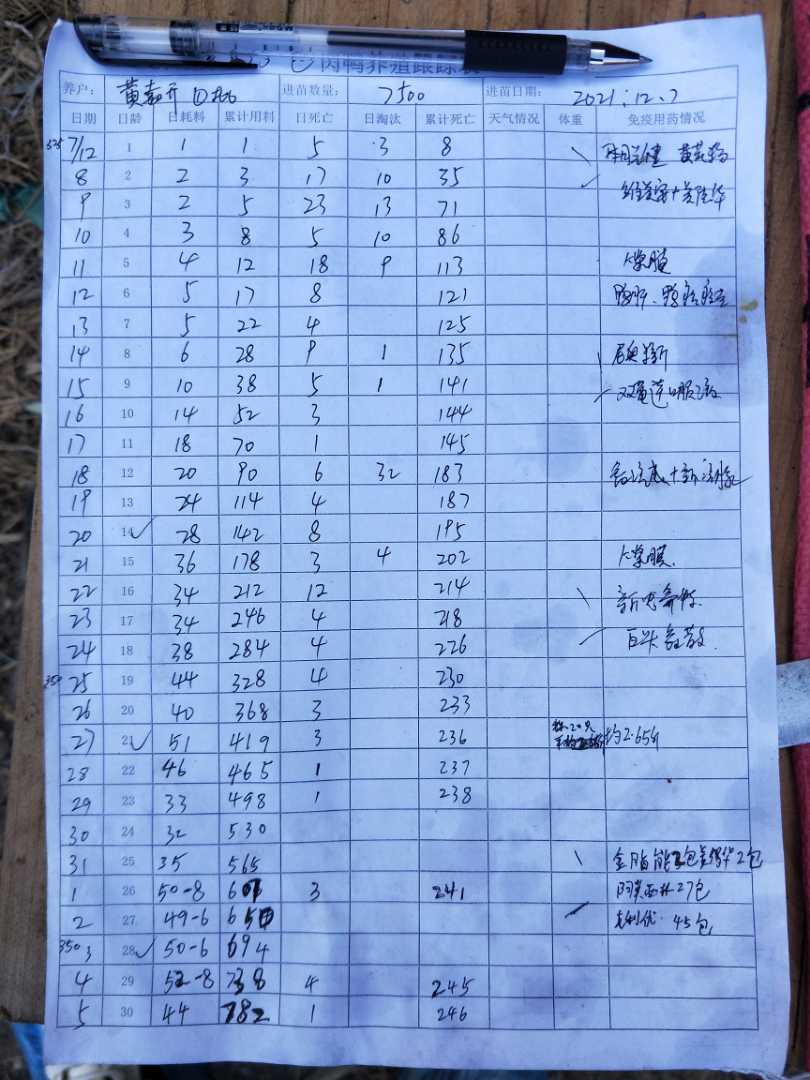 肉鸭养殖跟踪表
养户： 进苗数量： 7500 进苗日期： 2021.12.7
日期 日龄 日耗料 累计用料 日死亡 日淘汰 累计死亡 天气情况 体重 免疫用药情况
7/12 1 1 1 5 3 8
8 2 2 3 17 10 35
9 3 2 5 23 13 71
10 4 3 8 5 10 86
11 5 4 12 18 9 113
12 6 5 17 8 121
13 7 5 22 4 125
14 8 6 28 9 1 135
15 9 10 38 5 1 141
16 10 14 52 3 144
17 11 18 70 1 145
18 12 20 90 6 32 183
19 13 24 114 4 187
20 14 28 142 8 195
21 15 36 178 3 4 202
22 16 34 212 12 214
23 17 34 246 4 218
24 18 38 284 4 226
25 19 44 328 4 230
26 20 40 368 3 233
27 21 51 419 3 236 约2.65斤
28 22 46 465 1 237
29 23 33 498 1 238
30 24 32 530
31 25 35 565
1 26 50-8 607 3 241 阿莫西林27包
2 27 49-6 650 45包
350 3 28 50-6 694
4 29 52-8 738 4 245
5 30 44 782 1 246